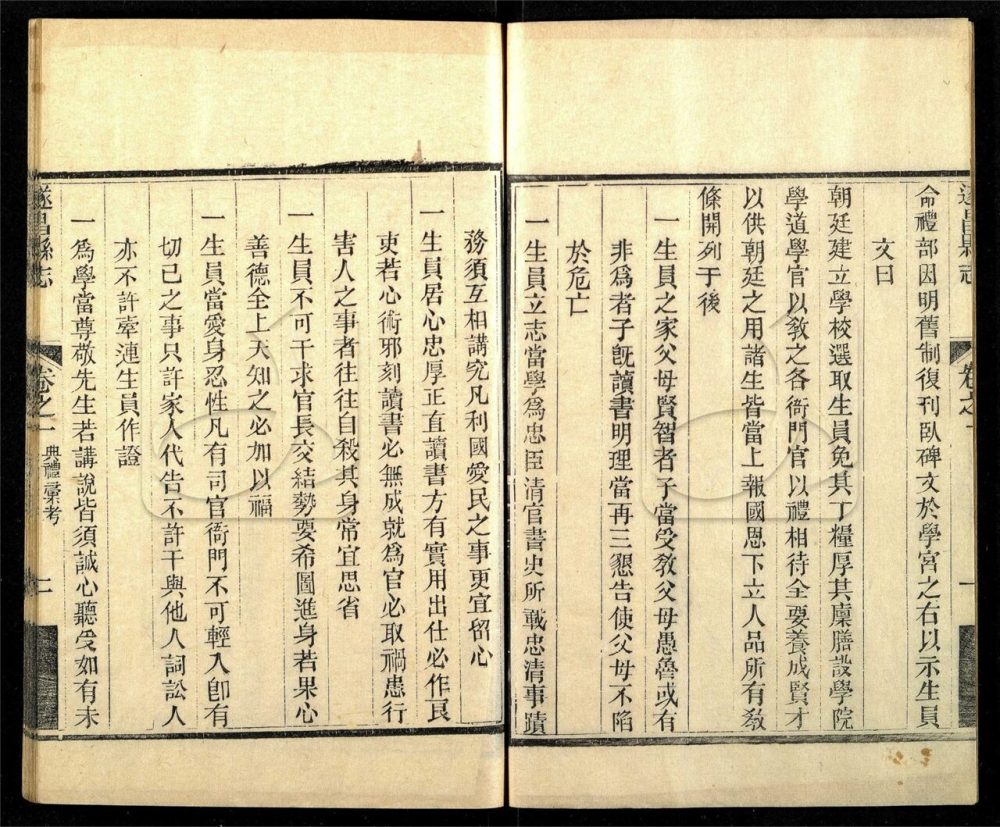 遂昌縣志
卷之一
一
命禮部因明舊制復刊臥碑文於學宮之右以示生員
文曰
朝廷建立學校選取生員免其丁糧厚其廩膳設學院
學道學官以教之各衙門官以禮相待全要養成賢才
以供朝廷之用諸生皆當上報國恩下立人品所有教
條開列于後
一生員之家父母賢智者子當受教父母愚魯或有
非為者子既讀書明理當再三懇告使父母不陷
於危亡
一生員立志當學為忠臣清官書史所載忠清事蹟
務須互相講究凡利國愛民之事更宜留心
一生員居心忠厚正直讀書方有實用出仕必作良
吏若心術邪刻讀書必無成就為官必取禍患行
害人之事者往往自殺其身常宜思省
一生員不可干求官長交結勢要希圖進身若果心
善德全上天知之必加以福
一生員當愛身忍性凡有司官衙門不可輕入卽有
切已之事只許家人代告不許干與他人詞訟人
亦不許牽連生員作證
一為學當尊敬先生若講說皆須誠心聽受如有未
遂昌縣志
卷之一
典禮彙考
二